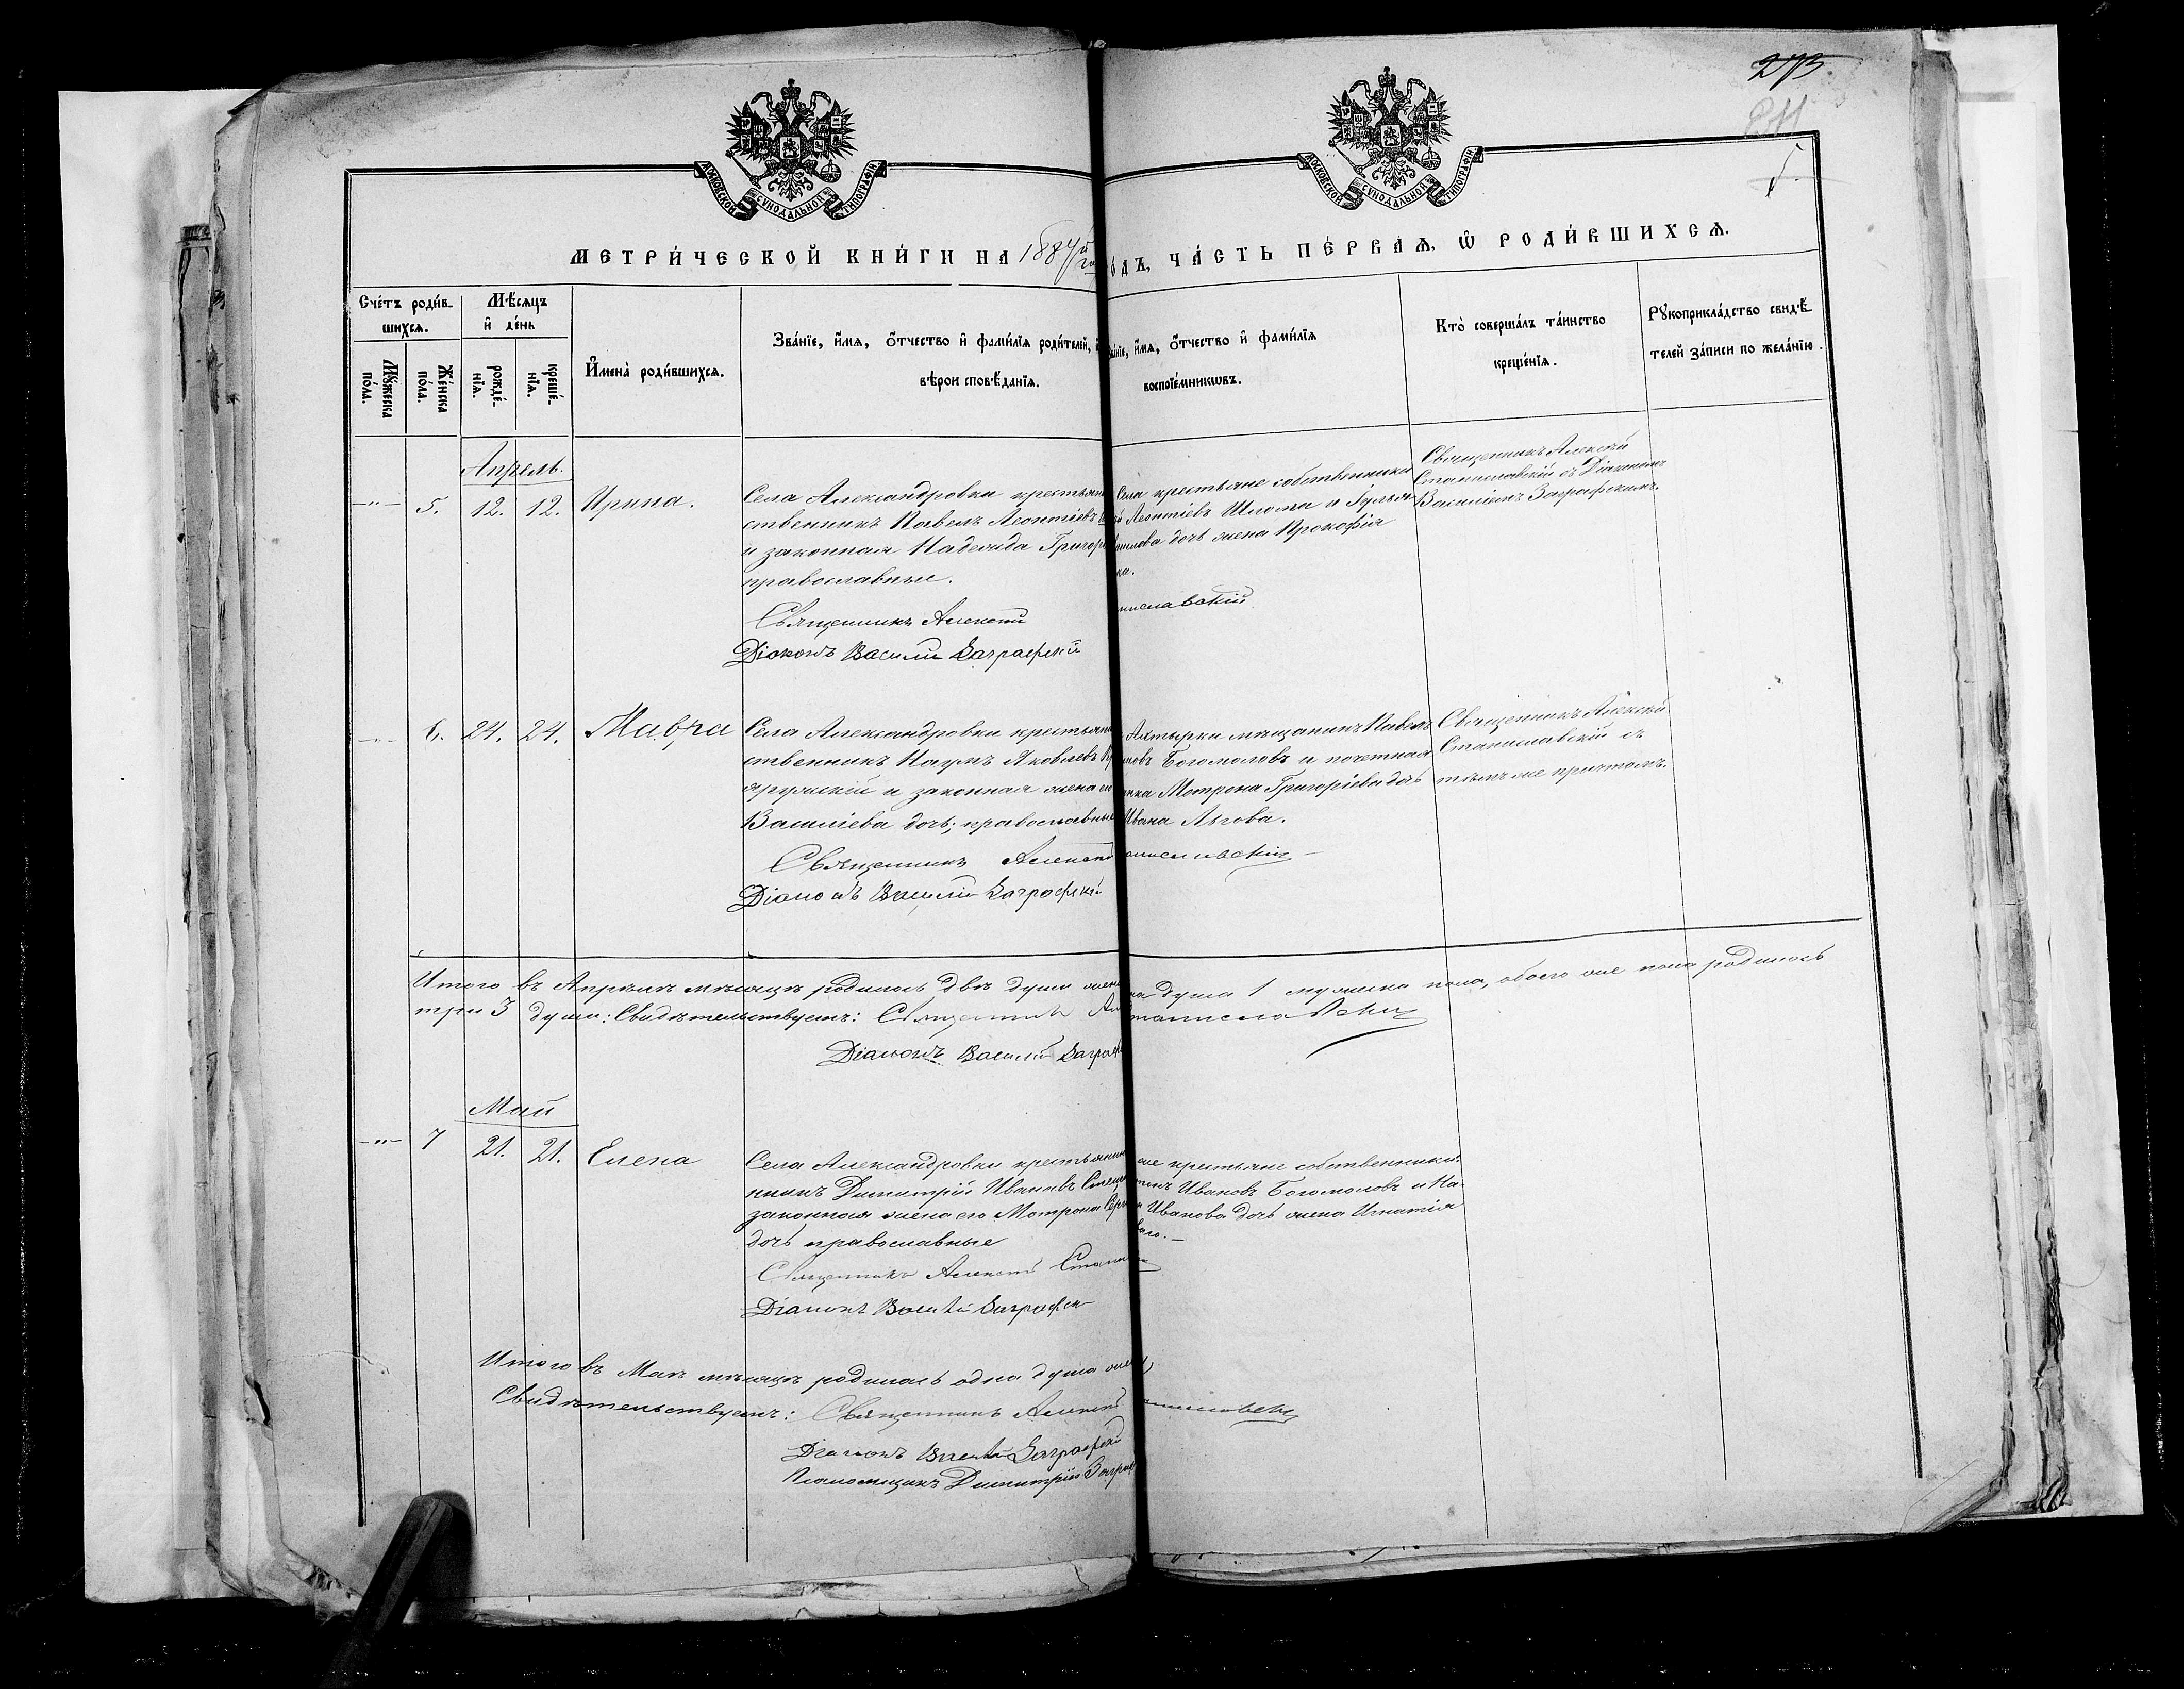 273
211
5.
МОСКОВСКОЙ СУНОДАЛЬНОЙ ТИПОГРАФІИ.
МОСКОВСКОЙ СУНОДАЛЬНОЙ ТИПОГРАФІИ.
МЕТРИ́ЧЕСКОЙ КНИ́ГИ НА 1884й го ДЪ, ЧА́СТЬ ПЕ́РВАѦ, Ѡ҆ РОДИ́ВШИХСѦ.
Сче́тъ роди́в-
шихсѧ.
Мꙋ́жеска по́ла.
Же́нска по́ла.
Мѣ́сѧцъ
и҆ де́нь
рожде́-нїѧ.
креще́-нїѧ.
И҆мена̀ роди́вшихсѧ.
Зва́нїе, и҆́мѧ, ѻ҆́тчество и҆ фами́лїѧ роди́телей, и҆
вѣ́рои сповѣ́данїѧ.
Зва́нїе, и҆́мѧ, ѻ҆́тчество и҆ фами́лїѧ
воспрїе́мникѡвъ.
Кто̀ соверша́лъ та́инство
креще́нїѧ.
Рꙋкоприкла́дство свидѣ́-
телей за́писи по жела́нїю.
Апрель.
-"- 5. 12. 12. Ирина.
Села Александровки крестьян
ственникъ Павелъ Леонтіевъ
и законная Надежда Григор
православные.
Священникъ Алексѣй
Діаконъ Василій Заграфскій
Села крестьяне собственники
Леонтіевъ Шлома и Гулья
рилова дочь жена Прокофія
на.
ниславскій
Священникъ Алексѣй
Станиславскій съ Діакономъ
Василіемъ Заграфскимъ.
-"- 6. 24. 24. Мавра
Села Александровки крестьян
ственникъ Наумъ Яковлевъ
яружскій и законная жена ег
Василіева дочь; православные
Священникъ Алексѣй
Діаконъ Василій Заграфскій
Ахтырки мѣщанинъ Павелъ
новъ Богомоловъ и почетная
нка Мотрона Григоріева дочь
Ивана Льгова.
аниславскій
Священникъ Алексѣй
Станиславскій съ
тѣмъ же причтомъ.
Итого въ Апрѣлѣ мѣсяцѣ родилось двѣ души женс на душа 1 мужска пола, обоего же пола родилось
три 3 души: Свидѣтельствуемъ: Священникъ Ал таниславскій
Діаконъ Василій Заграф
Май
-"- 7 21. 21. Елена
Села Александровки крестьянин
никъ Димитрій Ивановъ
законная жена его Мотрона
дочь православные
Священникъ Алексѣй Стани
Діаконъ Василій Заграфск
же крестьяне собственники:
Ивановъ Богомоловъ и На-
Иванова дочь жена Игнатія
ваго.—
Итого въ Маѣ мѣсяцѣ родилась одна душа жен
Свидѣтельствуемъ: Священникъ Алексѣй аниславскій
Діаконъ Василій Заграфскій
Псаломщикъ Димитрій Заграф